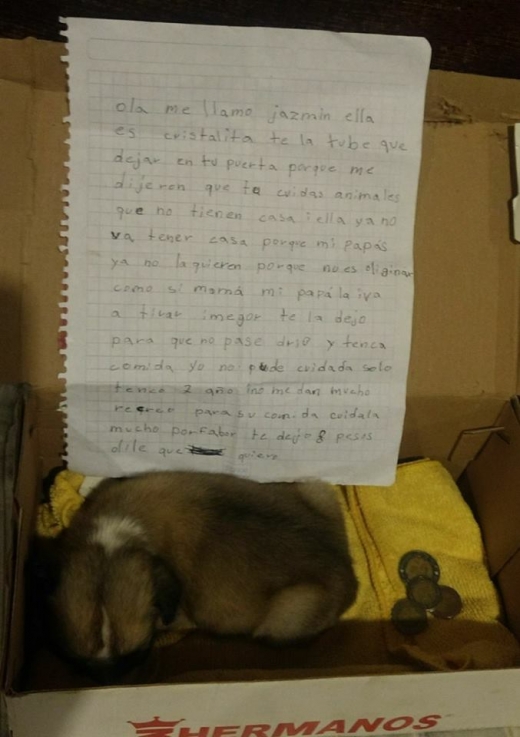 ola me llamo jazmin ella
es cristalita te la tube que
dejar en tu puerta porque me
dijeren que te cuidas animales
que no tienen casa i ella ya no
va tener casa porque mi papás
ya no la quieren porque no es oliginar
como si mamá mi papá la iva
a tirar imegor te la dejo
para que no pase drso y tenca
comida yo no pude cuidada solo
tence 2 año i no me dan mucho
recreo para su comida cuidala
mucho porfabor te dejo 8 pesos
dile que quiero
HERMANOS